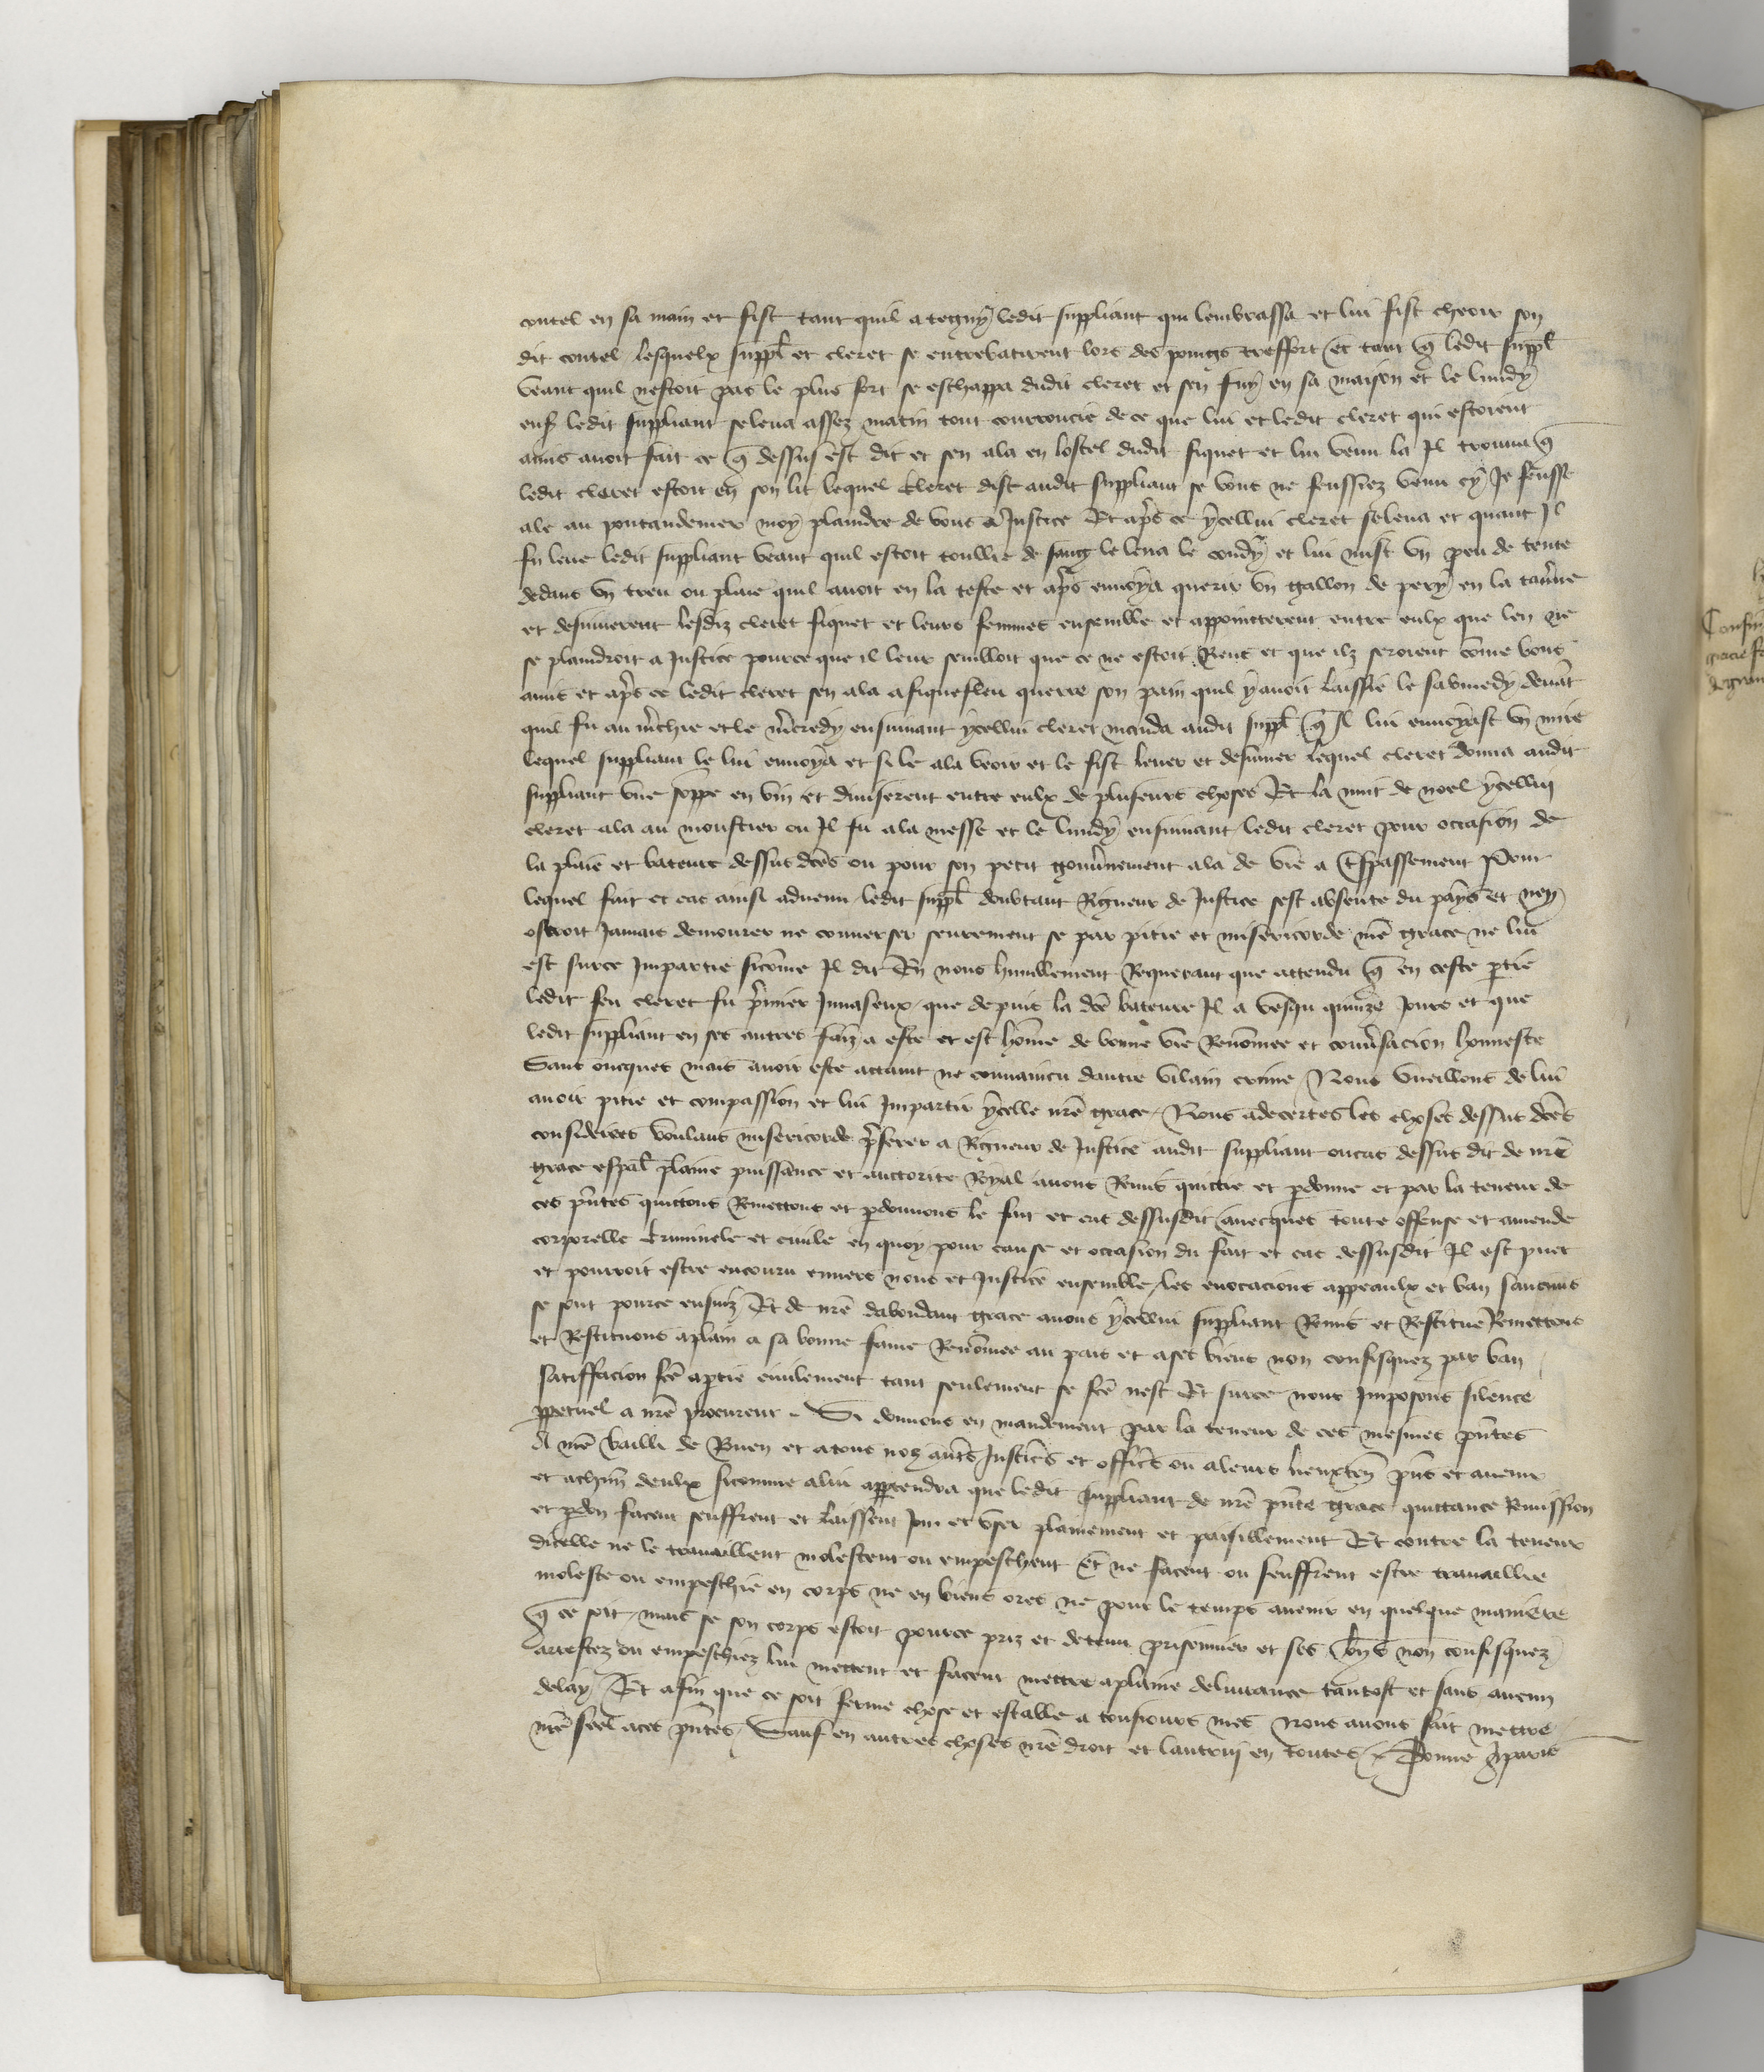 coutel en sa main et fist tant quil ategny ledit suppliant qui lembrassa et lui fist cheoir son
dit coutel lesquelx suppl et cleret se entrebatirent lors des poings tresfort et tant q ledit suppl
veant quil nestoit pas le plus fort se eschappa dudit cleret et sen fuy en sa maison et le lundy
ens ledit suppliant se leva assez matin tout courroucie de ce que lui et ledit cleret qui estoient
amis avoit fait ce q dessus est dit et sen ala en lostel dudit fiquet et lui venu la Il trouva q
ledit cleret estoit en son lit lequel Cleret dist audit suppliant se vous ne feussiez venu cy Je feusse
ale au pontaudemer moy plaindre de vous a Justice Et aps ce ycellui cleret se leva et quant Il
fu leve ledit suppliant veant quil estoit toullie de sang le lava le condy et lui mist un peu de tente
dedans un treu ou plaie quil avoit en la teste et aps envoya querir un gallon de pery en la tavne
et desjunerent lesdiz cleret fiquet et leurs femmes ensemble et appointterent entre eulx que len ne
se plaindroit a Justice pource que il leur sembloit que ce ne estoit Riens et que ilz seroient come bons
amis et aps ce ledit cleret sen ala a fiquefleu querre son pain quil y avoit laissie le sabmedy devat
quil fu au mchie et le mcredy ensuivant ycellui cleret manda audit suppl q Il lui envoyast un mire
lequel suppliant le lui envoya et si le ala veoir et le fist lever et desjuner lequel cleret donna audit
suppliant une souppe en vin et diviserent entre eulx de pluseurs choses Et la nuit de noel ycellui
cleret ala au moustier ou Il fu a la messe et le lundy ensuivant ledit cleret pour occasion de
la plaie et bateure dessus dces ou pour son petit gouvnement ala de vie a Tspassement Pour
lequel fait et cas ainsi advenu ledit suppl doubtant Rigueur de Justice sest absente du pays et ny
oseroit Jamais demourer ne converser seurement se par pitie et misericorde nre grace ne lui
est surce Impartie sicome Il dit En nous humblement Requerant que attendu q en ceste ptie
ledit feu cleret fu pmier Invaseux que depuis la dce bateure Il a vesqu quinze Jours et que
ledit suppliant en ses autres faiz a este et est home de bonne vie Renomee et convsacion honneste
Sans oncques mais avoir este attaint ne convaincu dautre vilain crime Nous vueillons de lui
avoir pitie et compassion et lui Impartir ycelle nre grace Nous adecertes les choses dessus dces
considerees voulans misericorde pferer a Rigueur de Justice audit suppliant oucas dessus dit de nre
grace espal plaine puissance et auctorite Royal avons Remis quictie et pdonne et par la teneur de
ces pntes quittons Remettons et pdonnons le fait et cas dessusdit avecques toute offense et amende
corporelle Criminele et civile en quoy pour cause et occasion du fait et cas dessusdit Il est puet
et pourroit estre encouru envers nous et Justice ensemble les evocacions appeaulx et ban saucuns
se sont pource ensuiz Et de nre dabondant grace avons ycellui suppliant Remis et Restitue Remettons
et Restituons aplain a sa bonne fame Renomee au pais et a ses biens non confisquez par ban
Satisfacion fce a ptie civilement tant seulement se fce nest Et surce nous Imposons silence
ppetuel a nre procureur Si donnons en mandement par la teneur de ces mesmes pntes
A nre bailli de Rouen et a tous noz auts Justics et offics ou a leurs lieuxten pns et avenir
et a chun deulx sicomme a lui appartendra que ledit suppliant de nre pnte grace quittance Remission
et pdon facent seuffrent et laissent Joir et user plainement et paisiblement Et contre la teneur
dicelle ne le travaillent molestent ou empeschent Et ne facent ou seuffrent estre travaillie
moleste ou empeschie en corps ne en biens ores ne pour le temps avenir en quelque maniere
q ce soit mais se son corps estoit pource priz et detenu prisonnier et ses bns non confisquez
arrestez ou empeschiez lui mettent et facent mettre a plaine delivrance tantost et sans aucun
delay Et afin que ce soit ferme chose et estable a tousiours mes nous avons fait mettre
nre seel a ces pntes Sauf en autres choses nre droit et lautruy en toutes Donne a paris